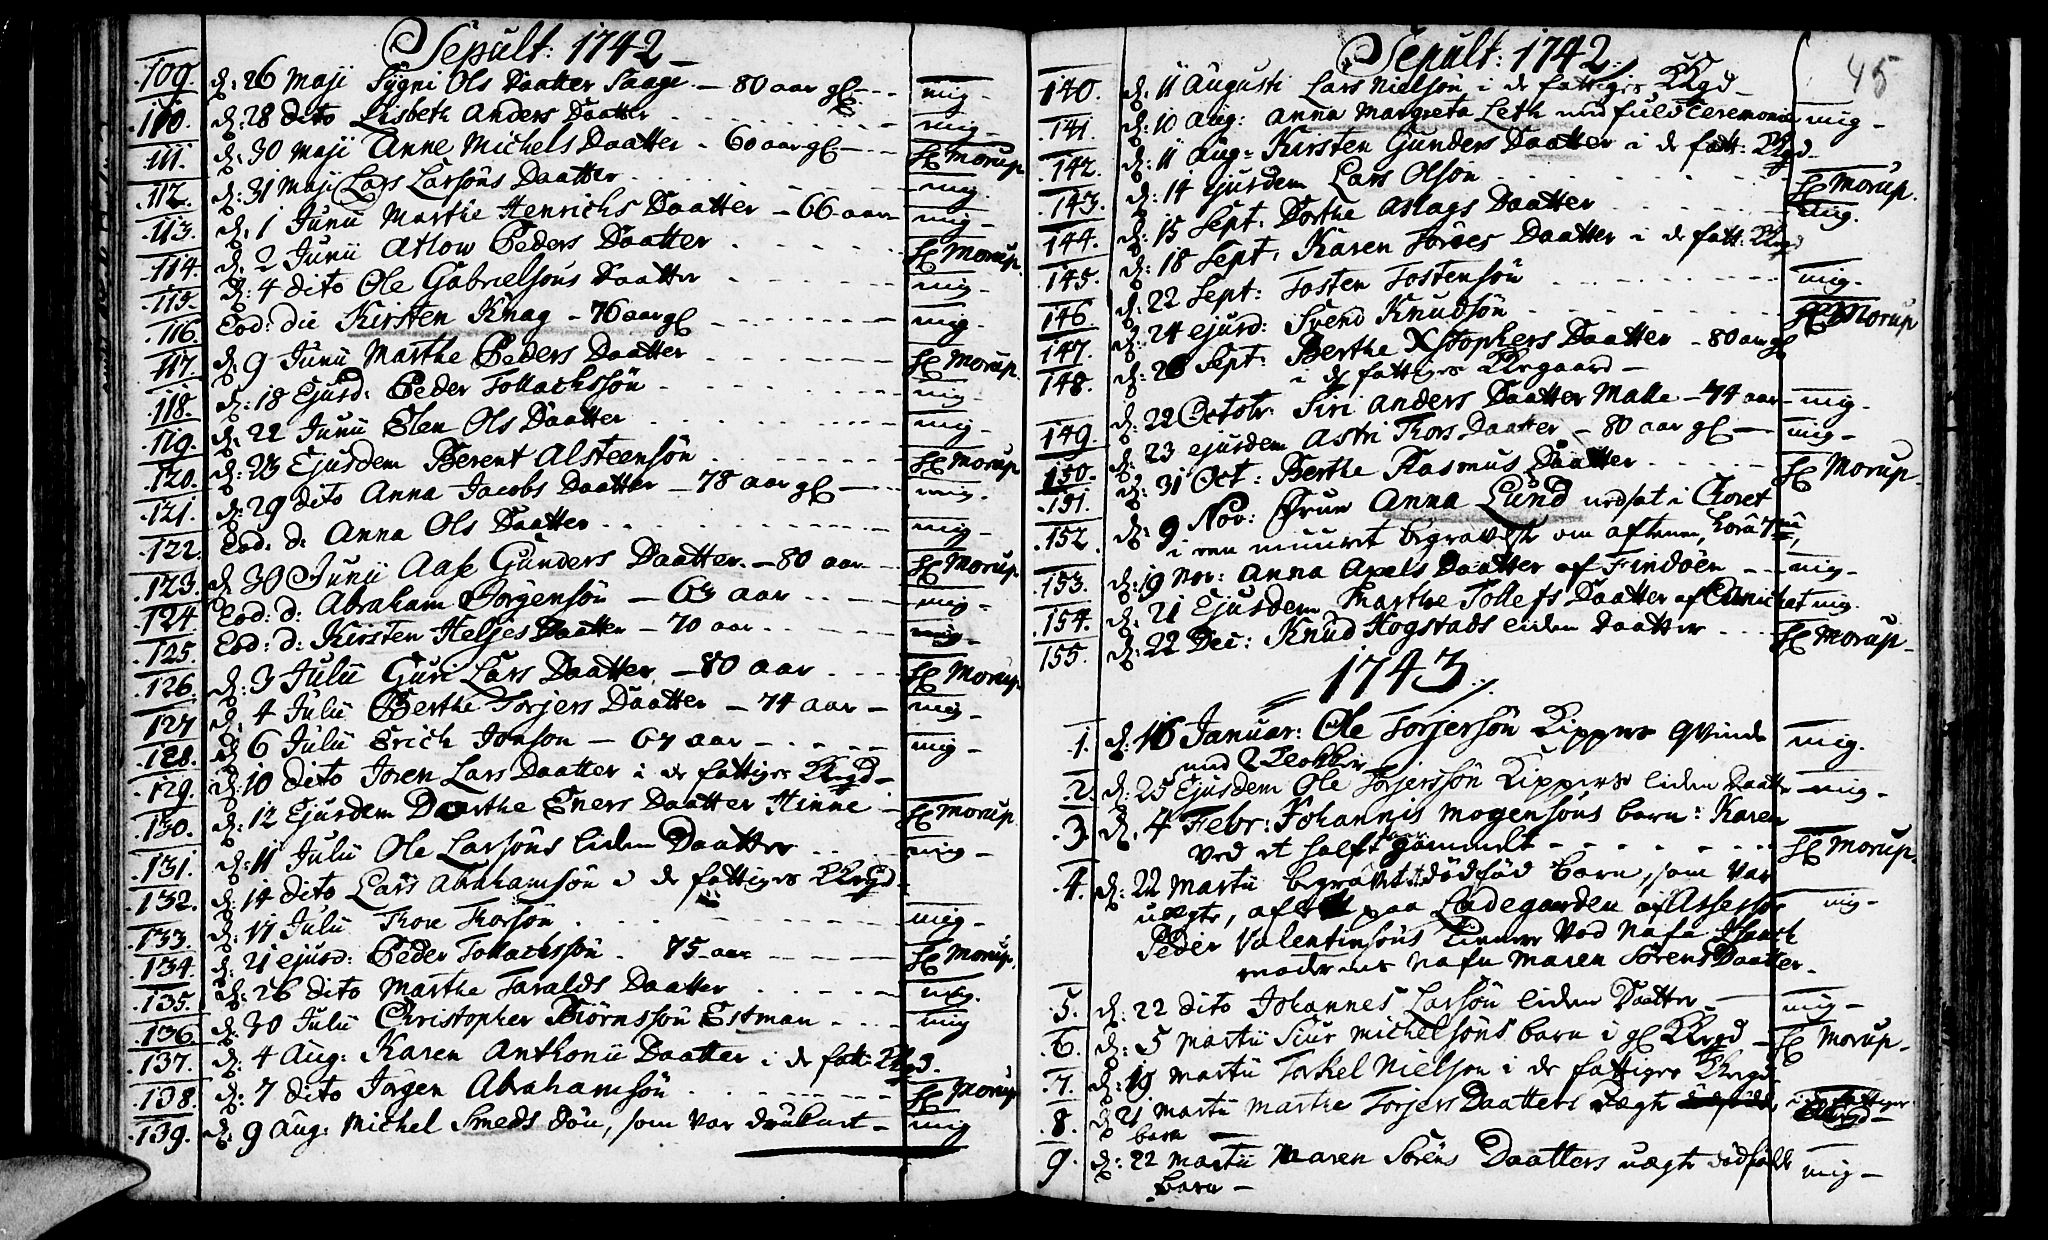 Sepult: 1742
109. d: 26 Maji Sygni Ols Daatter Saage - 80 aar gl --- mig -
110. d: 28 dito Lisbeth Anders Daatter - mig -
111. d: 30 Maji Anne Michels Daatter - 60 aar gl - Hr Morup
112. d: 31 Maji Lars Larsøns Daatter - mig -
113. d. 1 Junii Marthe Henrichs Daatter - 66 aar - mig -
114. d. 2 Junii Atlow Peders Daatter - Hr Morup.
115. d: 4 dito Ole Gabrielsøns Daatter - mig -
116. Eod: die Kirsten Knag - 76 aar gl - mig -
117. d. 9 Junii Marthe Peders Daatter - Hr Morup.
118. d: 18 Ejusd: Peder Tollachssøn - mig -
119. d: 22 Junii Elen Ols Daatter - mig -
120. d: 23 Ejusdem Berent Alsteensøn - Hr Morup
121. d: 29 dito Anna Jacobs Daatter - 78 aar gl - mig -
122. Eod: d: Anna Ols Daatter - mig -
123. d 30 Junii Aase Gunders Daatter. - 80 aar - Hr Morup
124 Eod: d: Abraham Børgensøn - 63 aar - mig -
125. Eod: d: Kirsten Heljes Daatter - 70 aar - mig -
126. d: 3 Julii Guri Lars Daatter, - 80 aar - Hr Morup.
127 d. 4 Julii Berthe Torjers Daatter - 74 aar - mig -
128. d 6 Julii Erich Jonson - 67 aar - mig -
129. d: 10 dito Joren Lars Daatter i de fattiges Kgd -
130. d: 12 Ejusdem Dorthe Eners Daatter Hinne - Hr Morup
131. d: 11 Julii Ole Larsøns liden Daatter - mig -
132. d: 14 dito Lars Abrahamsøn i de fattiges Kgd
133. d: 17 Julii Thore Thorsøn - mig -
134. d: 21 ejusd: Peder Tollachssøn - 75 aar - Hr Morup.
135. d: 26 dito Marthe Taralds Daatter - mig.
136 d: 30 Julii Christopher Biörnssøn Estman - mig
137. d: 4 Aug: Karen Anthonii Daatter i de fatt: Kgd.
138 d: 7 dito Jørgen Abrahamsøn - Hr Morup
139. d: 9 Aug: Michel Smeds Søn, som var druknet - mig
Sepult: 1742. 45
140. d: 11 Augusti Lars Nielsøn i de fattiges Kgd -
141. d: 10 Aug: Anna Margreta Leth med fuld Ceremonie mig -
142. d: 11 Aug: Kirsten Gunders Daatter i de fatt: Kgd -
143. d: 14 ejusdem Lars Olsøn - Hr Morup.
144. d: 15 Sept. Dorthe Aslags Daatter - mig.
145. d: 18 Sept. Karen Torges Daatter i de fatt: Kgd
146 d: 22 Sept: Tosten Tostensøn - mig -
147. d: 24 ejusd: Svend Knudsøn - Hr Morup
148. d: 26 Sept: Berthe Xstophers Daatter - 80 aar gl
i de fattiges Kirgaard -
149. d: 22 Octobr: Siri Anders Daatter Malle - 74 aar - mig.
150. d: 23 ejusdem Astri Thors Daatter - 80 aar gl - mig -
151. d: 31 Oct: Berthe Rasmus Daatter - Hr Morup -
152. d: 9 Nov: Frue Anna Lund nedsat i Choret
i een muuret begravelse om aftenen, hora 7
153. d: 19 Nov: Anna Axels Daatter af Findöen - mig -
154. d: 21 Ejusdem Marthe Tollefs Daatter af mig.
155. d: 22 Dec: Knud Hogstads liden Daatter - Hr Morup -
1743
1. d: 16 Januar: Ole Torjersøn Kippers Qvinde
med 2 Klokker mig.
2 d: 25 Ejusdem Ole Torjerssøn Kippers liden Daatter - mig -
3. d. 4 Febr: Johannis Mogensøns barn: Karen
ved et halft aar gammelt - Hr Morup.
4. d: 22 Martii begravet et dödföd barn, som var
uægte, paa Ladegaarden af Assessor
Peder Valentinsöns ved nafn
moderens nafn Maren Sörens Daatter - mig -
5. d: 22 dito Johannes Larsøn liden Daatter - mig -
6. d: 5 Martii Siur Michelsøns barn i gl Kgd - Hr Morup -
7. d: 19 Martii Torkel Nielsøn i de fattiges Kgd
8. d 21 Martii Marthe Torjers Daatters uægte i de fattiges
barn - Kgd -
9. d: 22 Martii Maren Sörens Daatters uægte dödfødt mig -
barn -